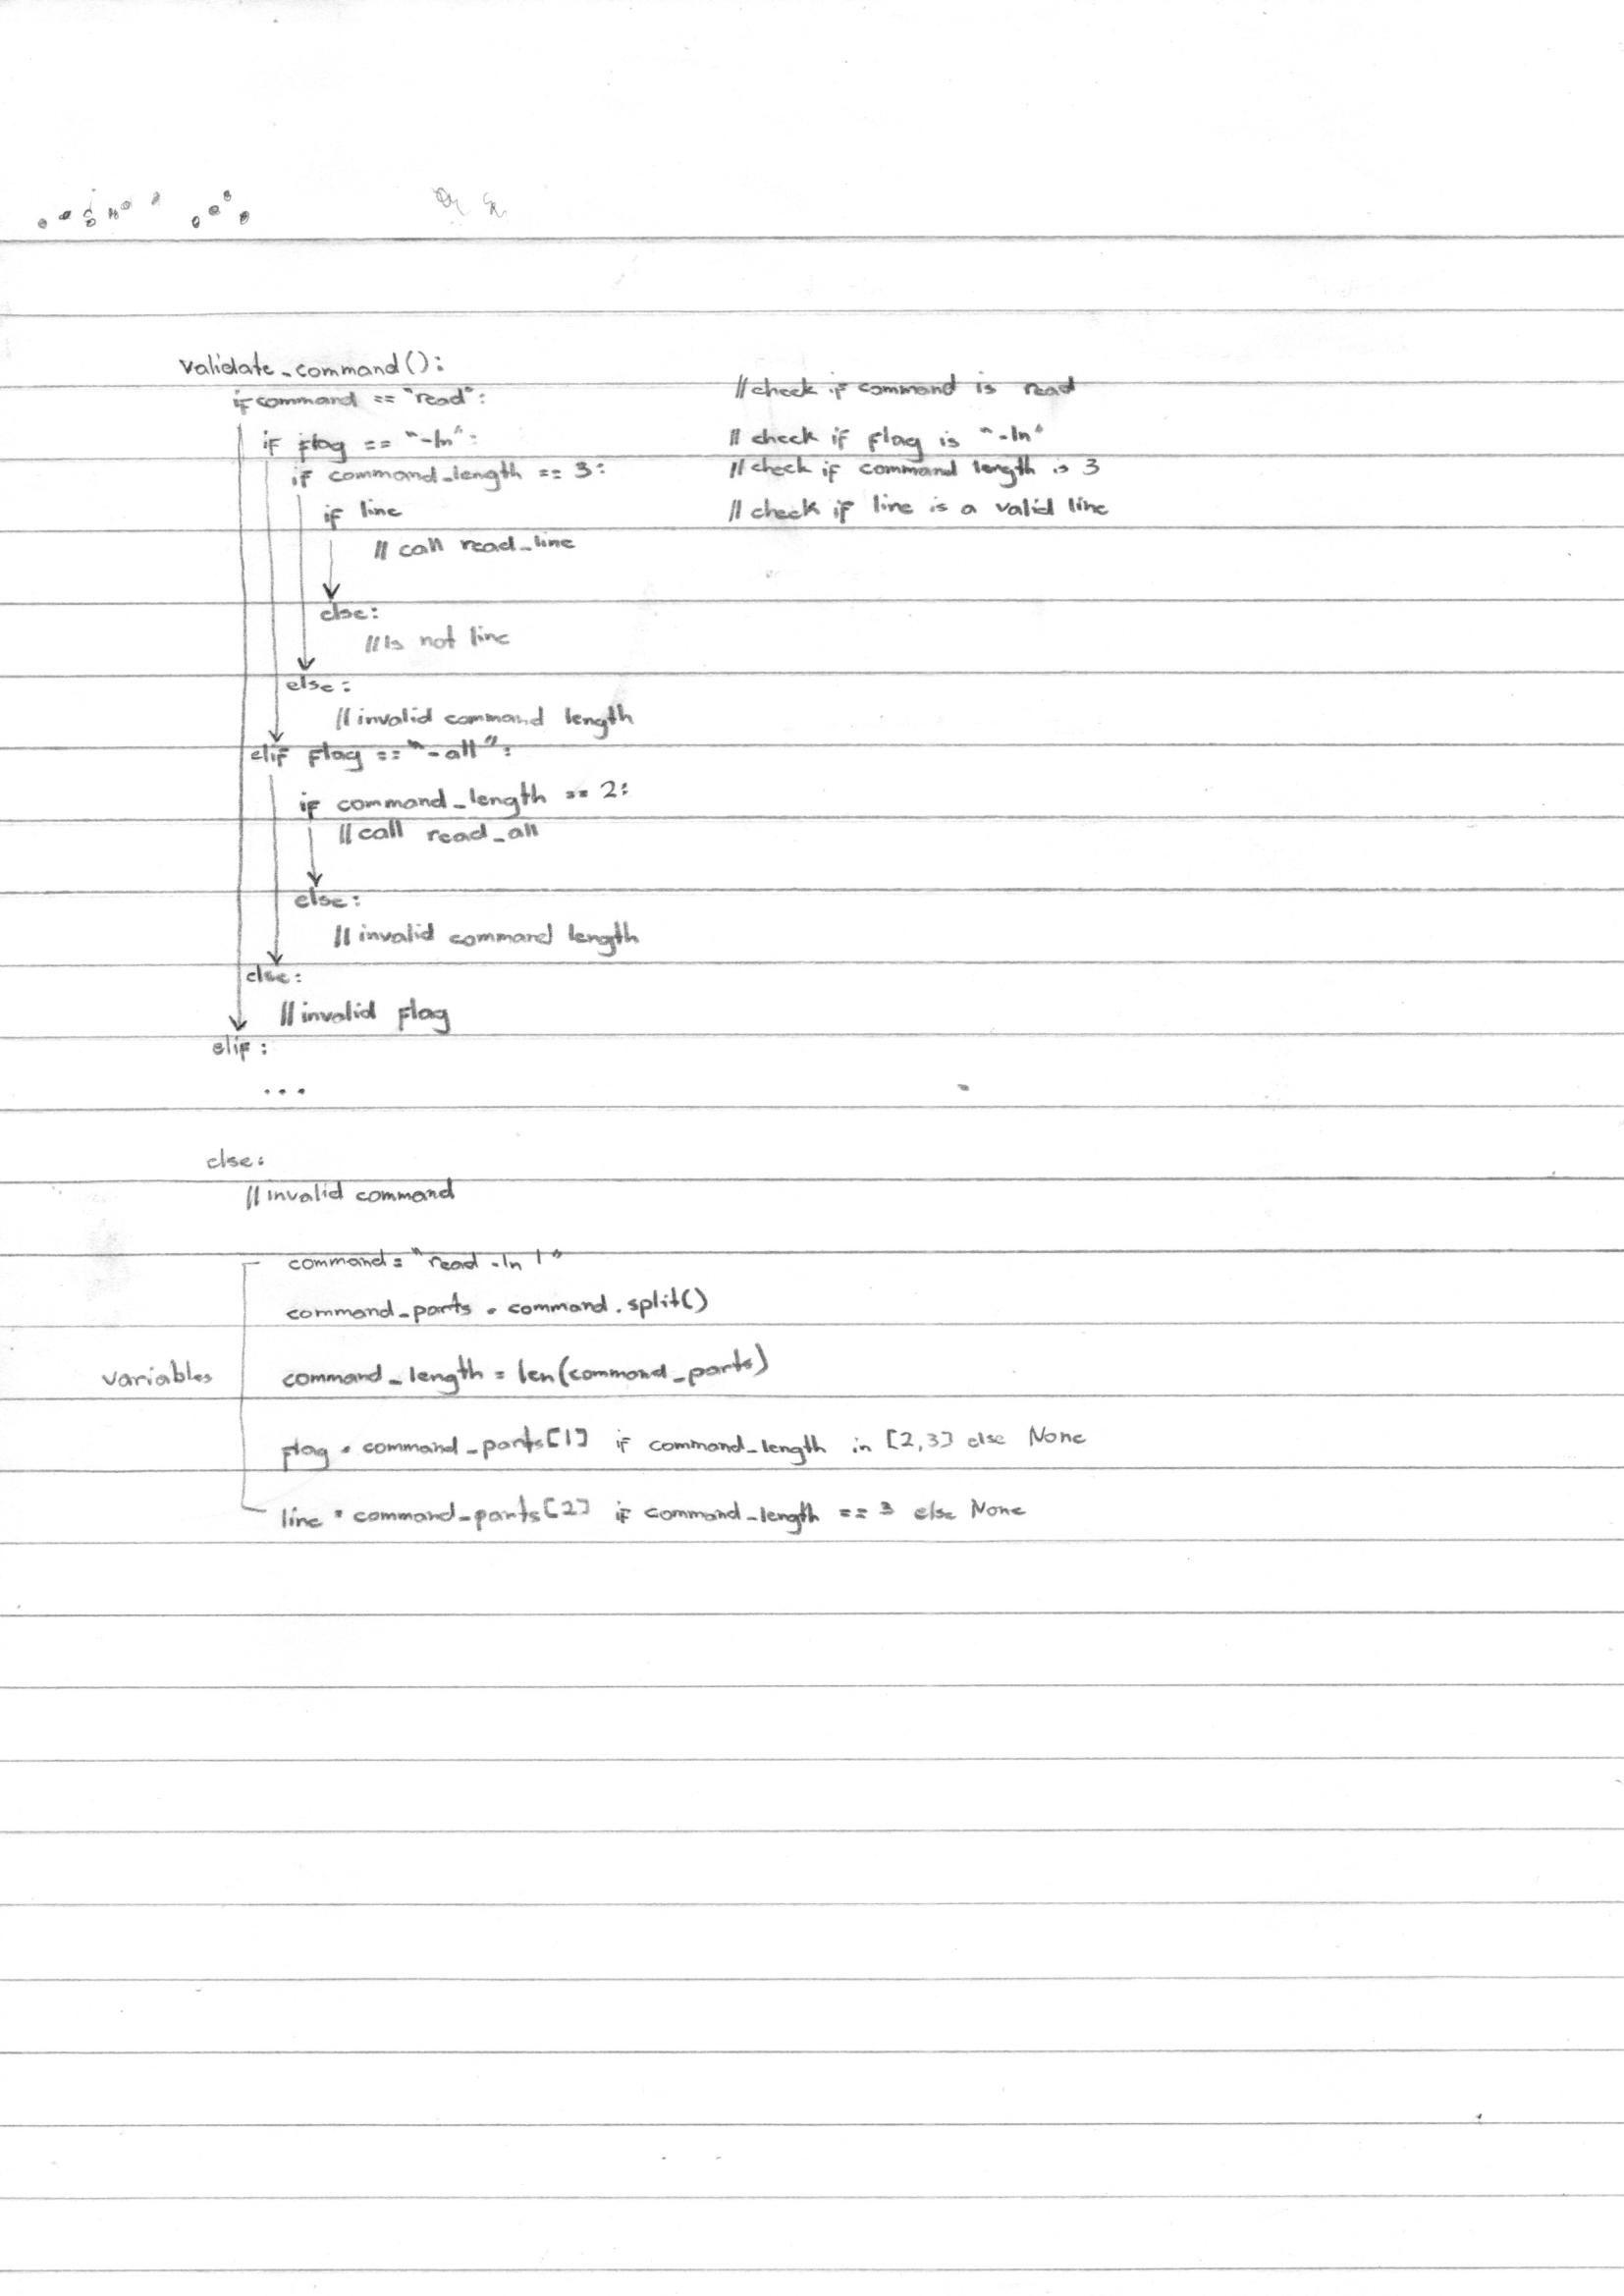 validate_command():
if command == "read": // check if command is read
if flag == "-ln": // check if flag is "-ln"
if command_length == 3: // check if command length is 3
if line // check if line is a valid line
// call read_line
else:
// is not line
else:
// invalid command length
elif flag == "-all":
if command_length == 2:
// call read_all
else:
// invalid command length
else:
// invalid flag
elif :
...
else:
// invalid command
command = "read -ln 1"
command_parts = command.split()
variables command_length = len(command_parts)
flag = command_parts[1] if command_length in [2,3] else None
line = command_parts[2] if command_length == 3 else None